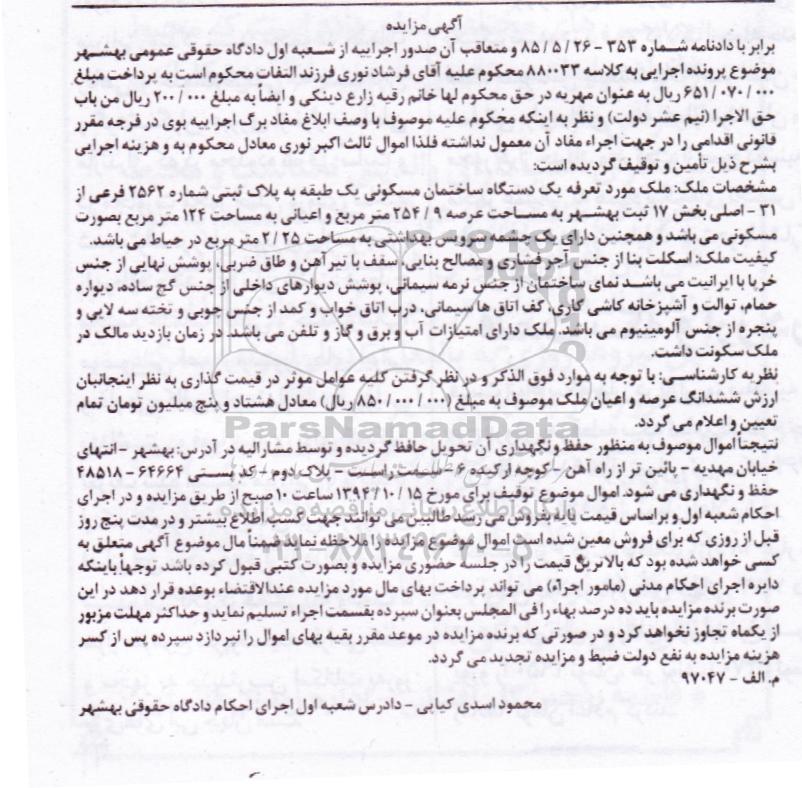 آگهی مزایده
برابر با دادنامه شماره ۳۵۳ - ۲۶ / ۵ / ۸۵ و متعاقب آن صدور اجراییه از شعبه اول دادگاه حقوقی عمومی بهشهر
موضوع پرونده اجرایی به کلاسه ۸۸۰۰۳۳ محکوم علیه آقای فرشاد نوری فرزند التفات محکوم است به پرداخت مبلغ
۶۵۱/۰۷۰/۰۰۰ ریال به عنوان مهریه در حق محکوم لها خانم رقیه زارع دینکی و ایضاً به مبلغ ۲۰۰/۰۰۰ ریال من باب
حق الاجرا (نیم عشر دولت) و نظر به اینکه محکوم علیه موصوف با وصف ابلاغ مفاد برگ اجراییه بوی در فرجه مقرر
قانونی اقدامی را در جهت اجراء مفاد آن معمول نداشته فلذا اموال ثالث اکبر نوری معادل محکوم به و هزینه اجرایی
بشرح ذیل تأمین و توقیف گردیده است:
مشخصات ملک: ملک مورد تعرفه یک دستگاه ساختمان مسکونی یک طبقه به پلاک ثبتی شماره ۲۵۶۲ فرعی از
۳۱ - اصلی بخش ۱۷ ثبت بهشهر به مساحت عرصه ۲۵۴/۹ متر مربع و اعیانی به مساحت ۱۲۴ متر مربع بصورت
مسکونی می باشد و همچنین دارای یک چشمه سرویس بهداشتی به مساحت ۲/۲۵ متر مربع در حیاط می باشد.
کیفیت ملک: اسکلت بنا از جنس آجر فشاری و مصالح بنایی، سقف با تیر آهن و طاق ضربی، پوشش نهایی از جنس
خرپا با ایرانیت می باشد نمای ساختمان از جنس نرمه سیمانی، پوشش دیوارهای داخلی از جنس گچ ساده، دیواره
حمام، توالت و آشپزخانه کاشی کاری، کف اتاق ها سیمانی، درب اتاق خواب و کمد از جنس چوبی و تخته سه لایی و
پنجره از جنس آلومینیوم می باشد. ملک دارای امتیازات آب و برق و گاز و تلفن می باشد. در زمان بازدید مالک در
ملک سکونت داشت.
نظریه کارشناسی: با توجه به موارد فوق الذکر و در نظر گرفتن کلیه عوامل موثر در قیمت گذاری به نظر اینجانبان
ارزش ششدانگ عرصه و اعیان ملک موصوف به مبلغ (۸۵۰/۰۰۰/۰۰۰ ریال) معادل هشتاد و پنج میلیون تومان تمام
تعیین و اعلام می گردد.
ParsNamadData
نتیجتاً اموال موصوف به منظور حفظ و نگهداری آن تحویل حافظ گردیده و توسط مشارالیه در آدرس: بهشهر - انتهای
خیابان مهدیه - پائین تر از راه آهن - کوچه ارکیده ۶ - سمت راست - پلاک دوم - کد پستی ۶۴۶۶۴ - ۴۸۵۱۸
حفظ و نگهداری می شود. اموال موضوع توقیف برای مورخ ۱۵ / ۱۰ / ۱۳۹۴ ساعت ۱۰ صبح از طریق مزایده و در اجرای
احکام شعبه اول و براساس قیمت پایه بفروش می رسد طالبین می توانند جهت کسب اطلاع بیشتر و در مدت پنج روز
قبل از روزی که برای فروش معین شده است اموال موضوع مزایده را ملاحظه نماید ضمناً مال موضوع آگهی متعلق به
کسی خواهد شده بود که بالاترین قیمت را در جلسه حضوری مزایده و بصورت کتبی قبول کرده باشد توجهاً باینکه
دایره اجرای احکام مدنی (مامور اجراء) می تواند پرداخت بهای مال مورد مزایده عندالاقتضاء بوعده قرار دهد در این
صورت برنده مزایده باید ده درصد بهاء را فی المجلس بعنوان سپرده بقسمت اجراء تسلیم نماید و حداکثر مهلت مزبور
از یکماه تجاوز نخواهد کرد و در صورتی که برنده مزایده در موعد مقرر بقیه بهای اموال را نپردازد سپرده پس از کسر
هزینه مزایده به نفع دولت ضبط و مزایده تجدید می گردد.
م. الف - ۹۷۰۴۷
محمود اسدی کیاپی - دادرس شعبه اول اجرای احکام دادگاه حقوقی بهشهر